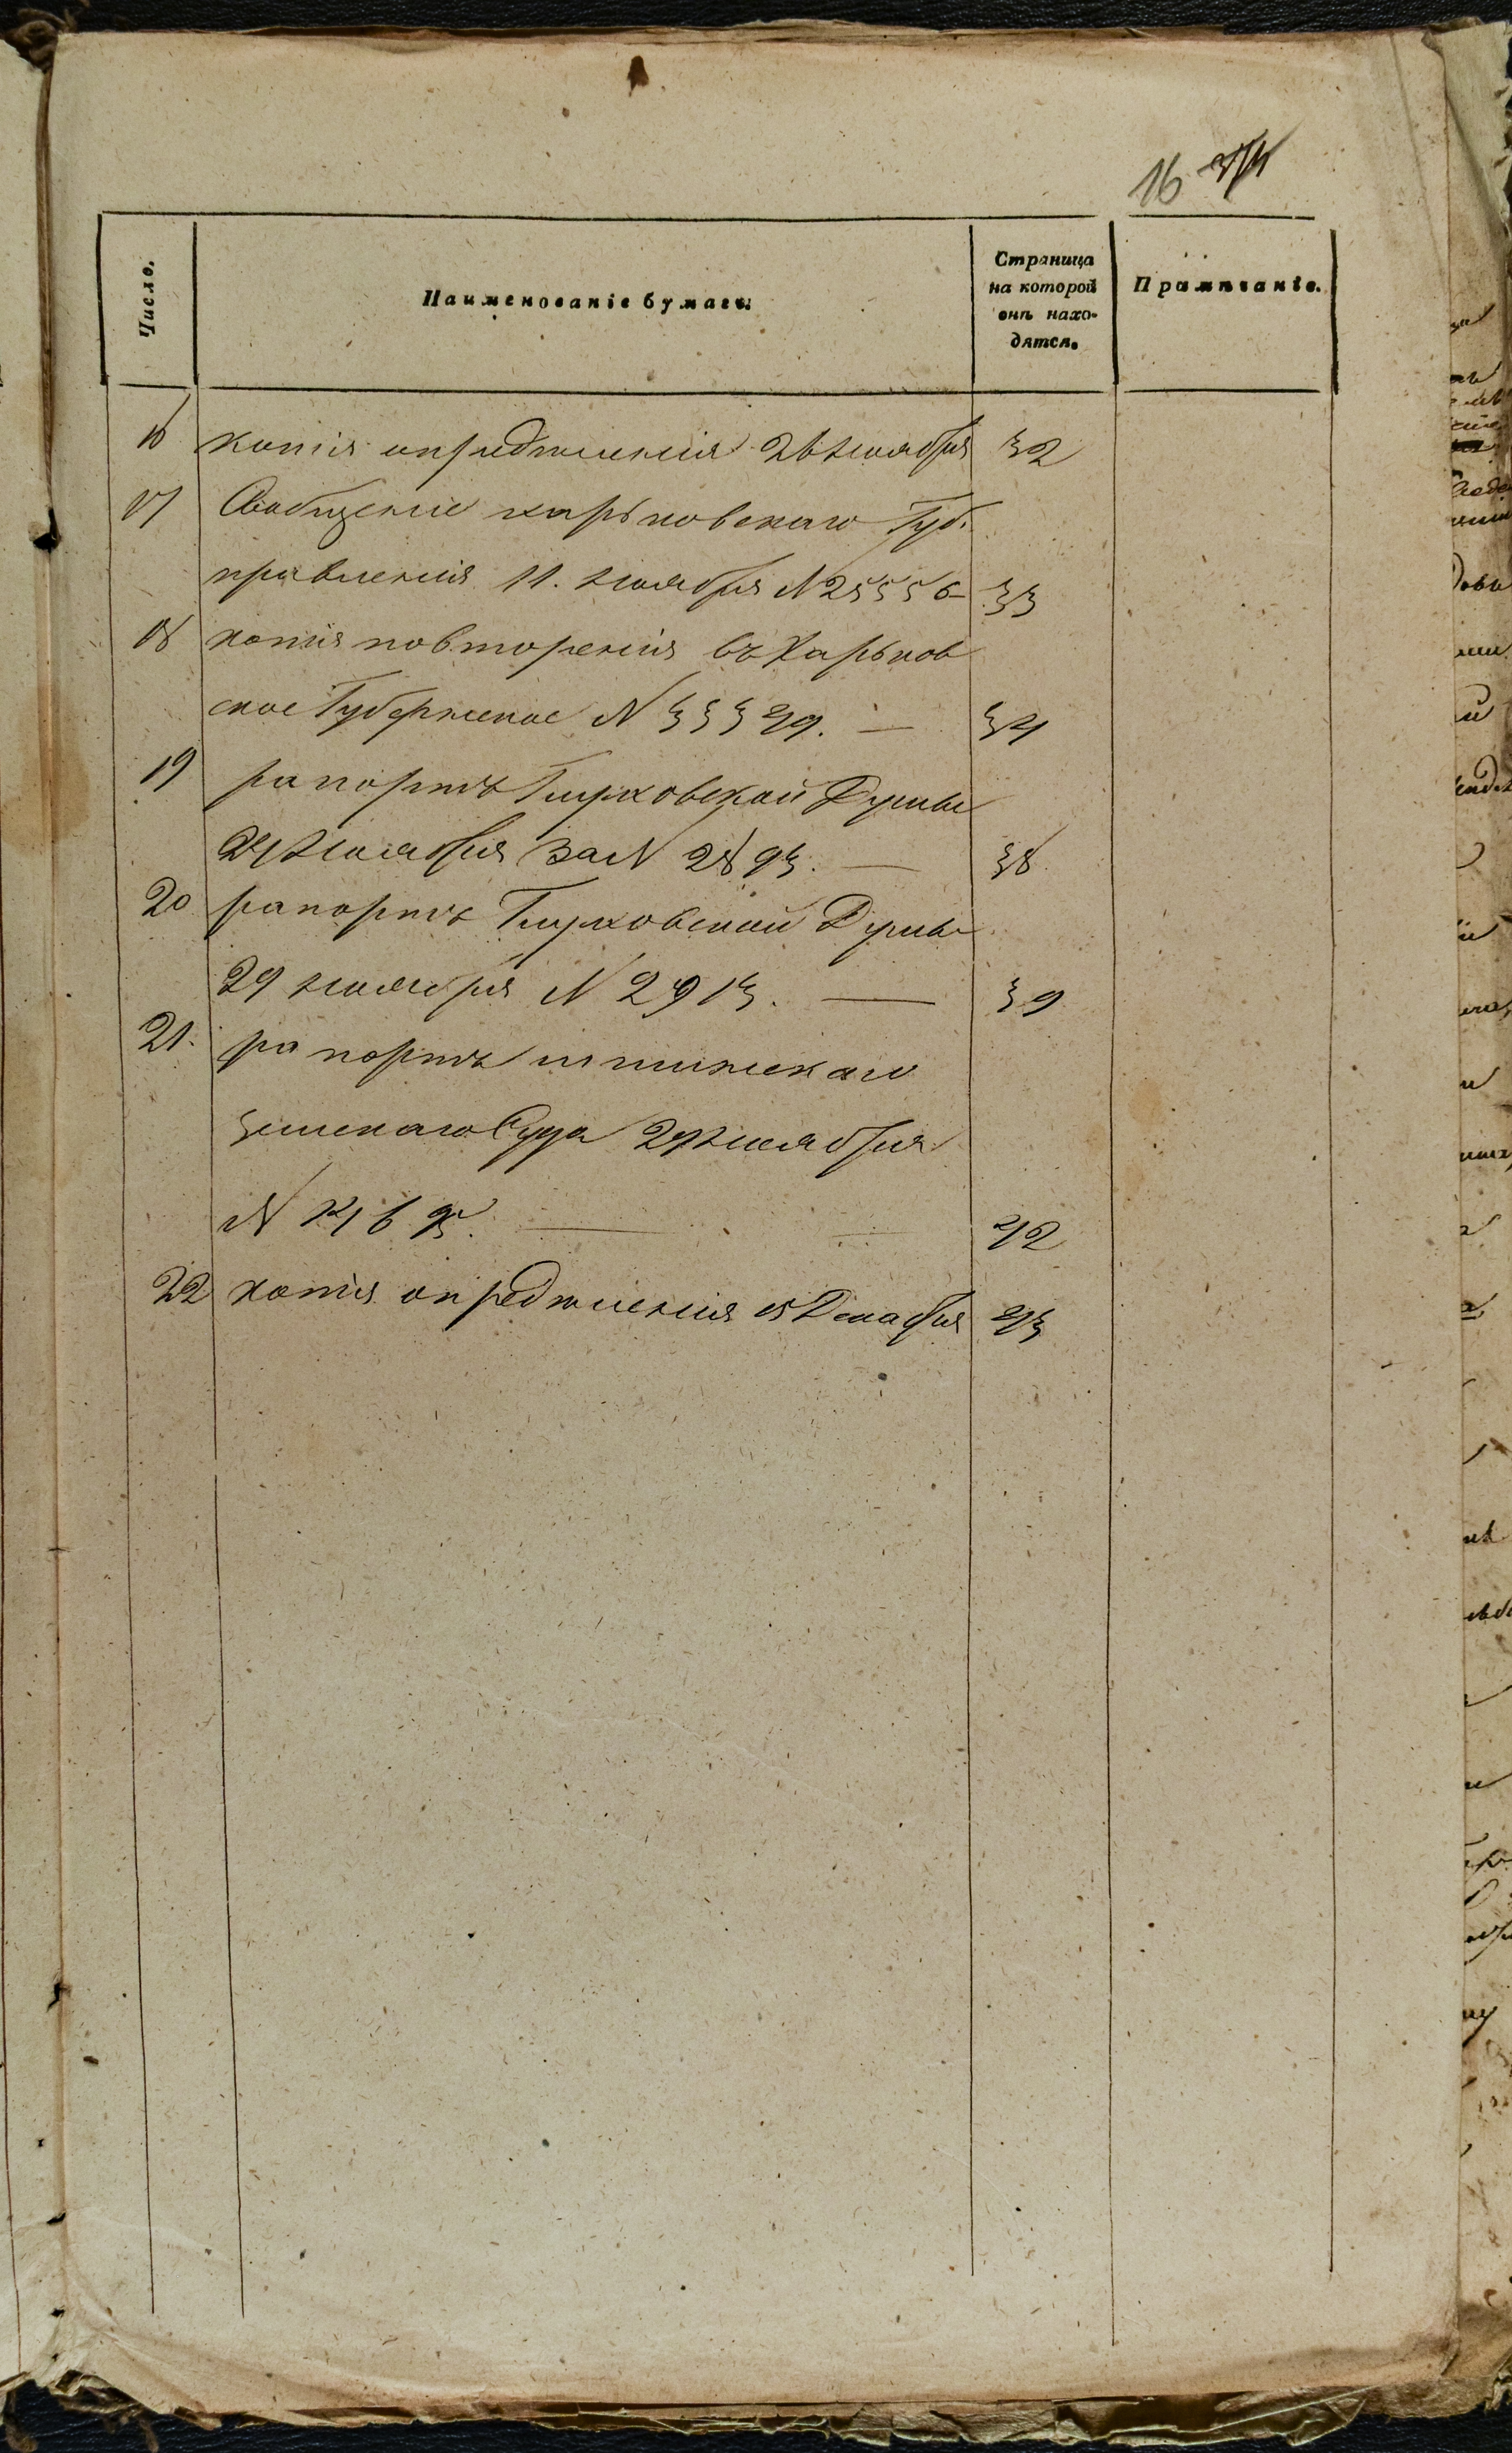 16
Число.
Наименованіе бумагъ.
Страница
на которой
онѣ нахо-
дятся.
Примѣчаніе.
16 копія опредѣленія 26 ноября 32
17 Сообщеніе харьковскаго Губ.
правленія 11. ноября N 25556 33
18 копія повторенія въ Харьков
ское Губернское N 33349. — 34
19 рапортъ Глуховской Думы
24 ноября за N 2893. — 38
20 рапортъ Глуховской Думы
29 ноября N 2913. — 39
21. рапортъ
земскаго Суда 24 ноября
N — 42
22 копія опредѣленія 15 Декабря 43